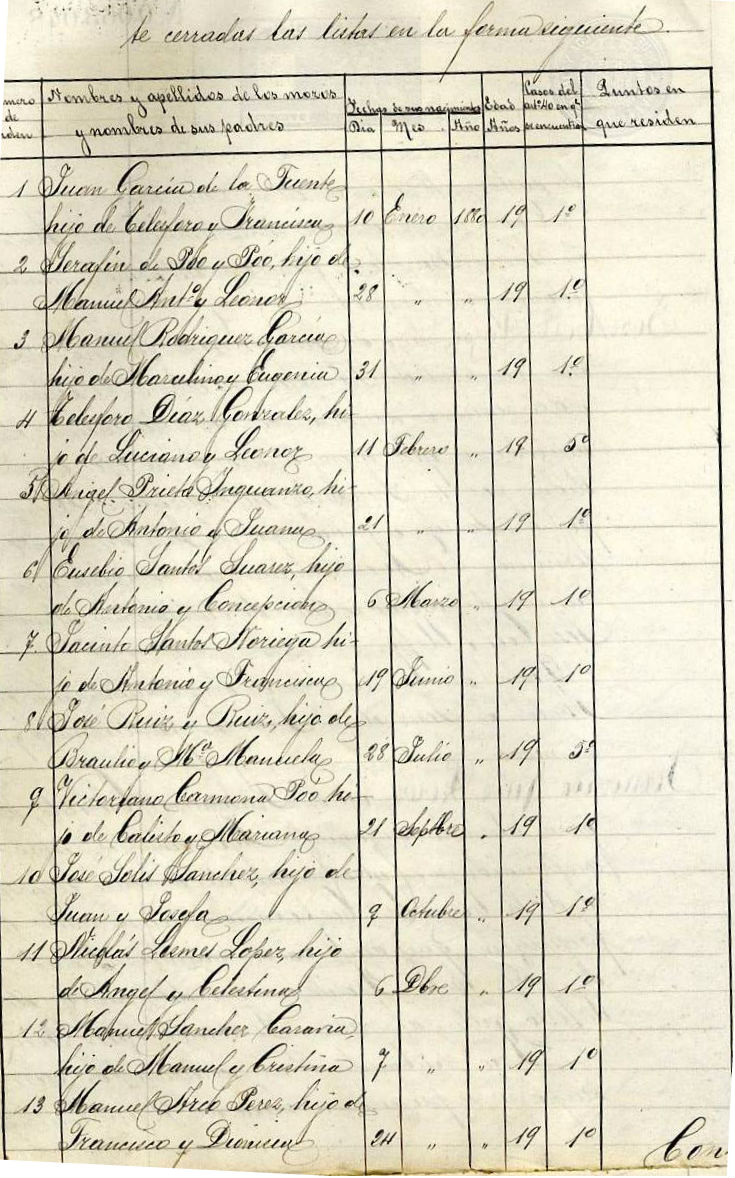 te cerradas las listas en la forma siguiente.
mero de rden | Nombres y apellidos de los mozos y nombres de sus padres | Fechas de sus nacimientos Dia Mes Año | Edad Años | Casos del artº 40 en qe se encuentran | Puntos en que residen
1 Juan García de la Fuente
hijo de Telesforo y Francisca 10 Enero 1880 19 1º
2 Serafín de Póo y Póo, hijo de
Manuel Antº y Leonor 28 " " 19 1º
3 Manuel Rodriguez García
hijo de Marcelino y Eugenia 31 " " 19 1º
4 Telesforo Díaz Gonzalez, hi-
jo de Luciano y Leonor 11 Febrero " 19 5º
5 Angel Prieto Inguanzo, hi-
jo de Antonio y Juana 21 " " 19 1º
6 Eusebio Santos Suarez, hijo
de Antonio y Concepcion 6 Marzo " 19 1º
7. Jacinto Santos Noriega hi-
jo de Antonio y Francisca 19 Junio " 19 1º
8 José Ruiz y Ruiz, hijo de
Braulio y Mª Manuela 28 Julio " 19 5º
9 Victoriano Carmona Póo hi-
jo de Calisto y Mariana 21 Septbre " 19 1º
10 José Solis Sanchez, hijo de
Juan y Josefa 9 Octubre " 19 1º
11 Nicolás Lesmes Lopez, hijo
de Angel y Celestina 6 Dbre " 19 1º
12 Manuel Sanchez Caravia,
hijo de Manuel y Cristina 7 " " 19 1º
13 Manuel Arco Perez, hijo de
Francisco y Dionicia 24 " " 19 1º
Con-